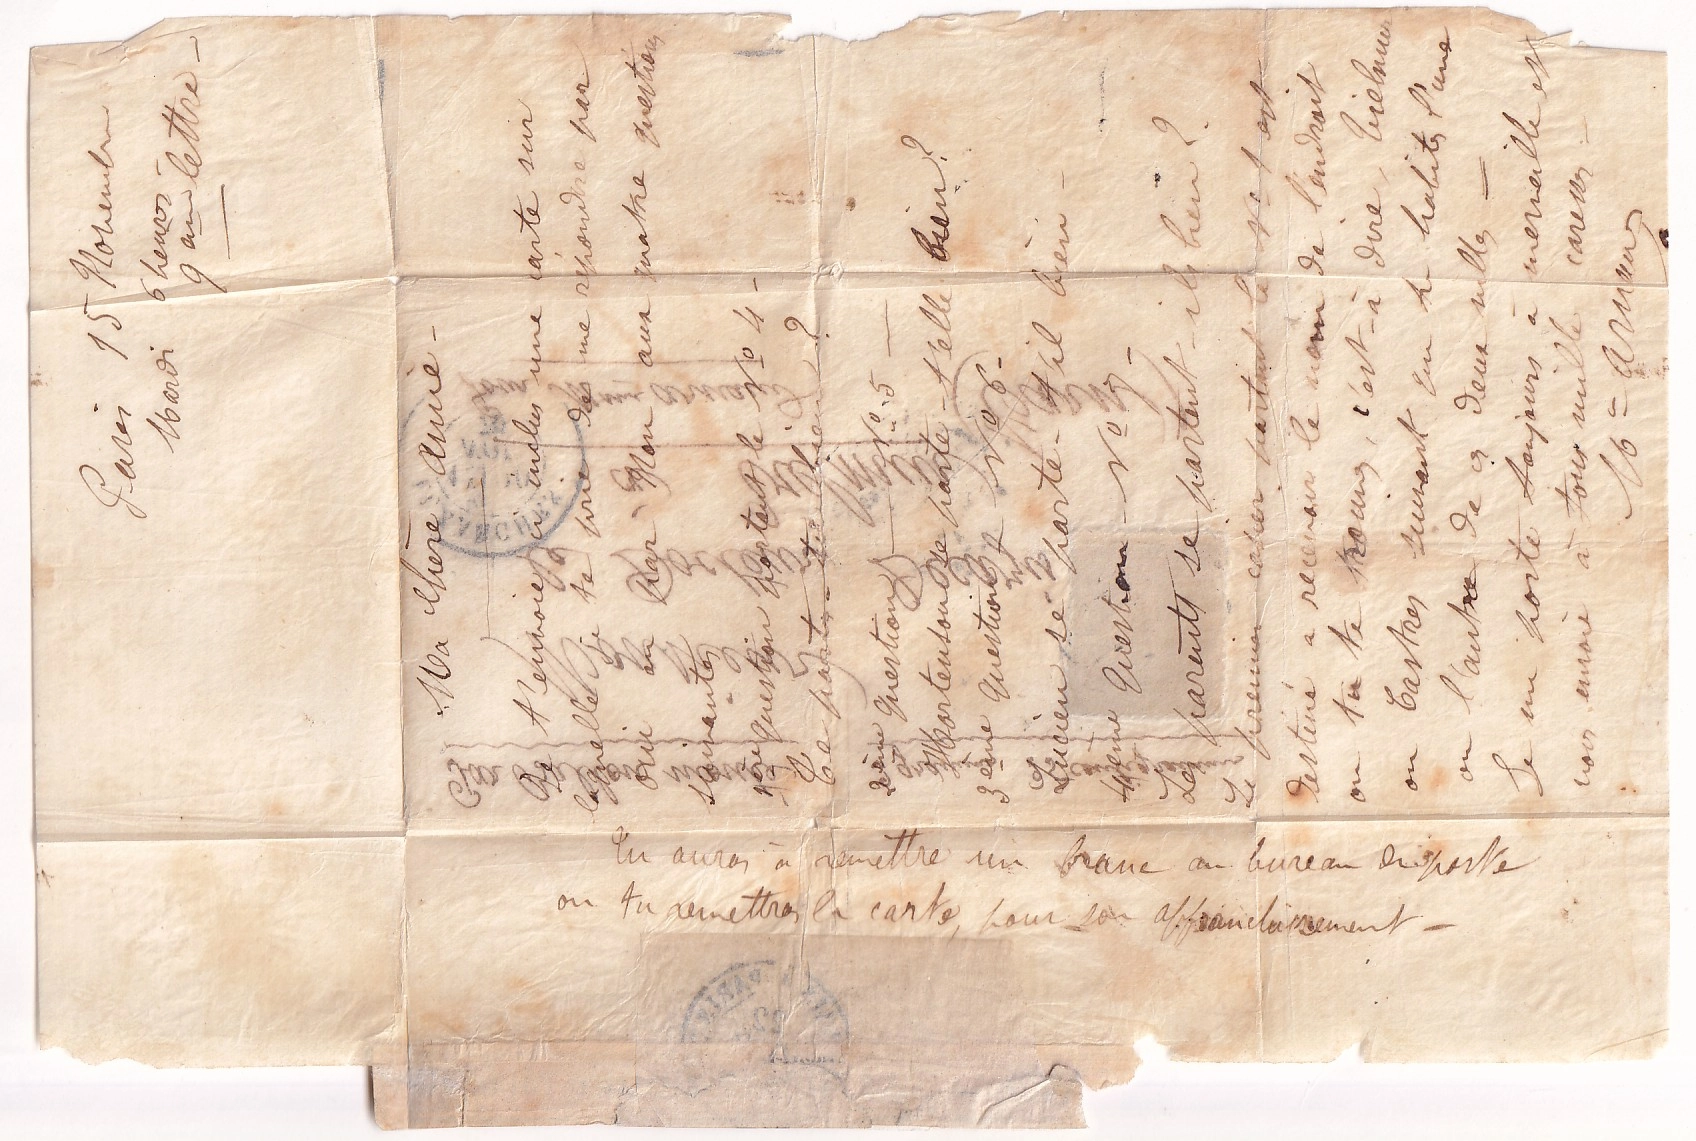 Paris 15 Novembre
Mardi 6 heures
9ème lettre
Ma chère amie
Je t'envoie ci inclus une carte sur
laquelle je te prie de me répondre par
oui ou par non aux quatre questions
suivantes
1ère question portant le No 4
Te portes-tu bien ?
2ème question No 5
Hortense se porte-t-elle bien ?
3ème question No 6
Lucien se porte-t-il bien
4ème question No 7
Les parents se portent-ils bien ?
Le premier casier portant le No 3 est
destiné à recevoir le nom de l'endroit
ou tu te trouves, c'est-à dire,
ou Castres suivant que tu habites l'une
ou l'autre de ces deux villes
Je me porte toujours à merveille et
vous envoie à tous mille caresses
Tu auras à remettre un franc au bureau de poste
ou tu remettras la carte, pour son affranchissement